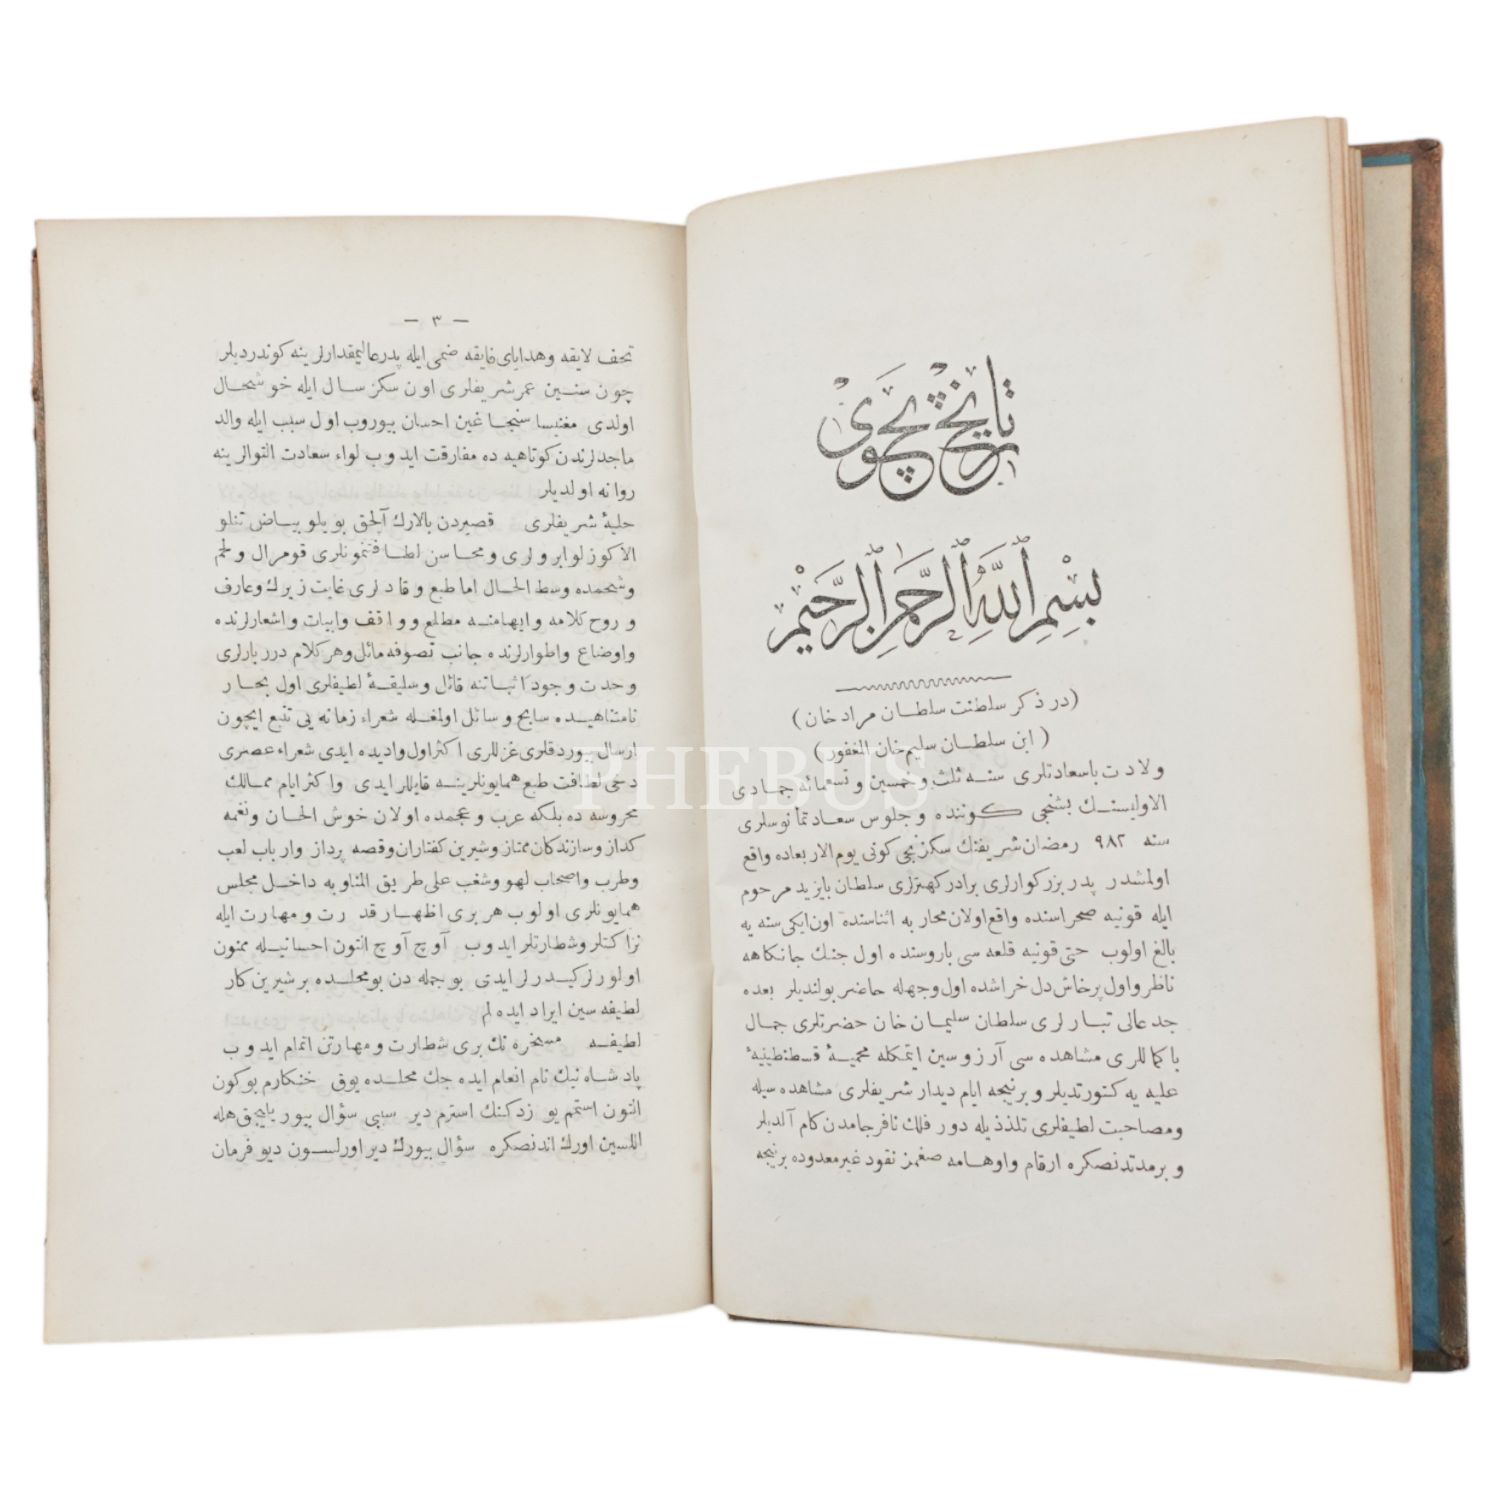 تاريخ پچوى
بسم الله الرحمن الرحيم
(در ذكر سلطنت سلطان مراد خان)
(ابن سلطان سليم خان المغفور)
ولادت باسعادتلرى سنه ثلث وخمسين وتسعمائه جمادى
الاولىسنك بشنجى كوننده وجلوس سعادتمأنوسلرى
سنه ٩٨٢ رمضان شريفنك سكزنجى كونى يوم الاربعاده واقع
اولمشدر پدر بزركوارلرى برادر كهترلرى سلطان بايزيد مرحوم
ايله قونيه صحراسنده واقع اولان محاربه اثناسنده اون ايكى سنه يه
بالغ اولوب حتى قونيه قلعه سى باروسنده اول جنك جانكاهه
ناظر واول پرخاش دل خراشده اول وجهله حاضر بولنديلر بعده
جد عالى تبارلرى سلطان سليمان خان حضرتلرى جمال
باكماللرى مشاهده سى آرزوسين ايتمكله محمية قسطنطينية
عليه يه كتورتديلر وبر نيجه ايام ديدار شريفلرى مشاهده سيله
ومصاحبت لطيفلرى تلذذيله دور فلك نافرجامدن كام آلديلر
وبر مدتدنصكره ارقام واوهامه صغمز نقود غير معدوده بر نيجه
— ٣ —
تحف لايقه وهداياى فايقه ضمى ايله پدر عاليمقدارلرينه كوندرديلر
چون سنين عمر شريفلرى اون سكز سال ايله خوشحال
اولدى مغنيسا سنجاغين احسان بيوروب اول سبب ايله والد
ماجدلرندن كوتاهيه ده مفارقت ايدوب لواء سعادت التوالرينه
روانه اولديلر
حلية شريفلرى قصيردن بالارك آلچق بويلو بياض تنلو
الاكوزلو ابرولرى ومحاسن لطافتنمونلرى قومرال ولحم
وشحمده وسط الحال اما طبع وقادلرى غايت زيرك وعارف
وروح كلامه وايهامنه مطلع وواقف وابيات واشعارلرنده
واوضاع واطوارلرنده جانب تصوفه مائل وهر كلام درربارلرى
وحدت وجود اثباتنه قائل وسليقة لطيفلرى اول بحار
نامتناهيده سابح وسائل اولمغله شعراء زمانه يى تتبع ايچون
ارسال بيوردقلرى غزللرى اكثر اول واديده ايدى شعراء عصرى
دخى لطافت طبع همايونلرينه قايللر ايدى واكثر ايام ممالك
محروسه ده بلكه عرب وعجمده اولان خوش الحان ونغمه
كداز وسازندكان ممتاز وشيرين كفتاران وقصه پرداز وارباب لعب
وطرب واصحاب لهو وشغب على طريق المناوبه داخل مجلس
همايونلرى اولوب هر برى اظهار قدرت ومهارت ايله
نزاكتلر وشطارتلر ايدوب آوچ آوچ التون احسانيله ممنون
اولورلر كيدرلر ايدى بو جمله دن بو محلده بر شيرين كار
لطيفه سين ايراد ايده لم
لطيفه مسخره نك برى شطارت ومهارتن اتمام ايدوب
پادشاه نيك نام انعام ايده جك محلده يوق خنكارم بوكون
التون استمم يوز دكنك استرم دير سببى سؤال بيوريلجق هله
اللسين اورك اندنصكره سؤال بيورك دير اورلسون ديو فرمان
PHEBUS